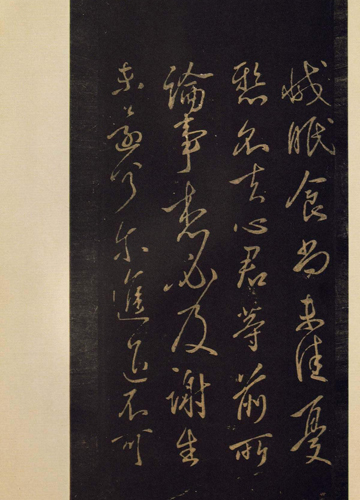 眠食尚未佳憂
懸不去心君等前所
論事想必及謝生
未還何尔進退不可